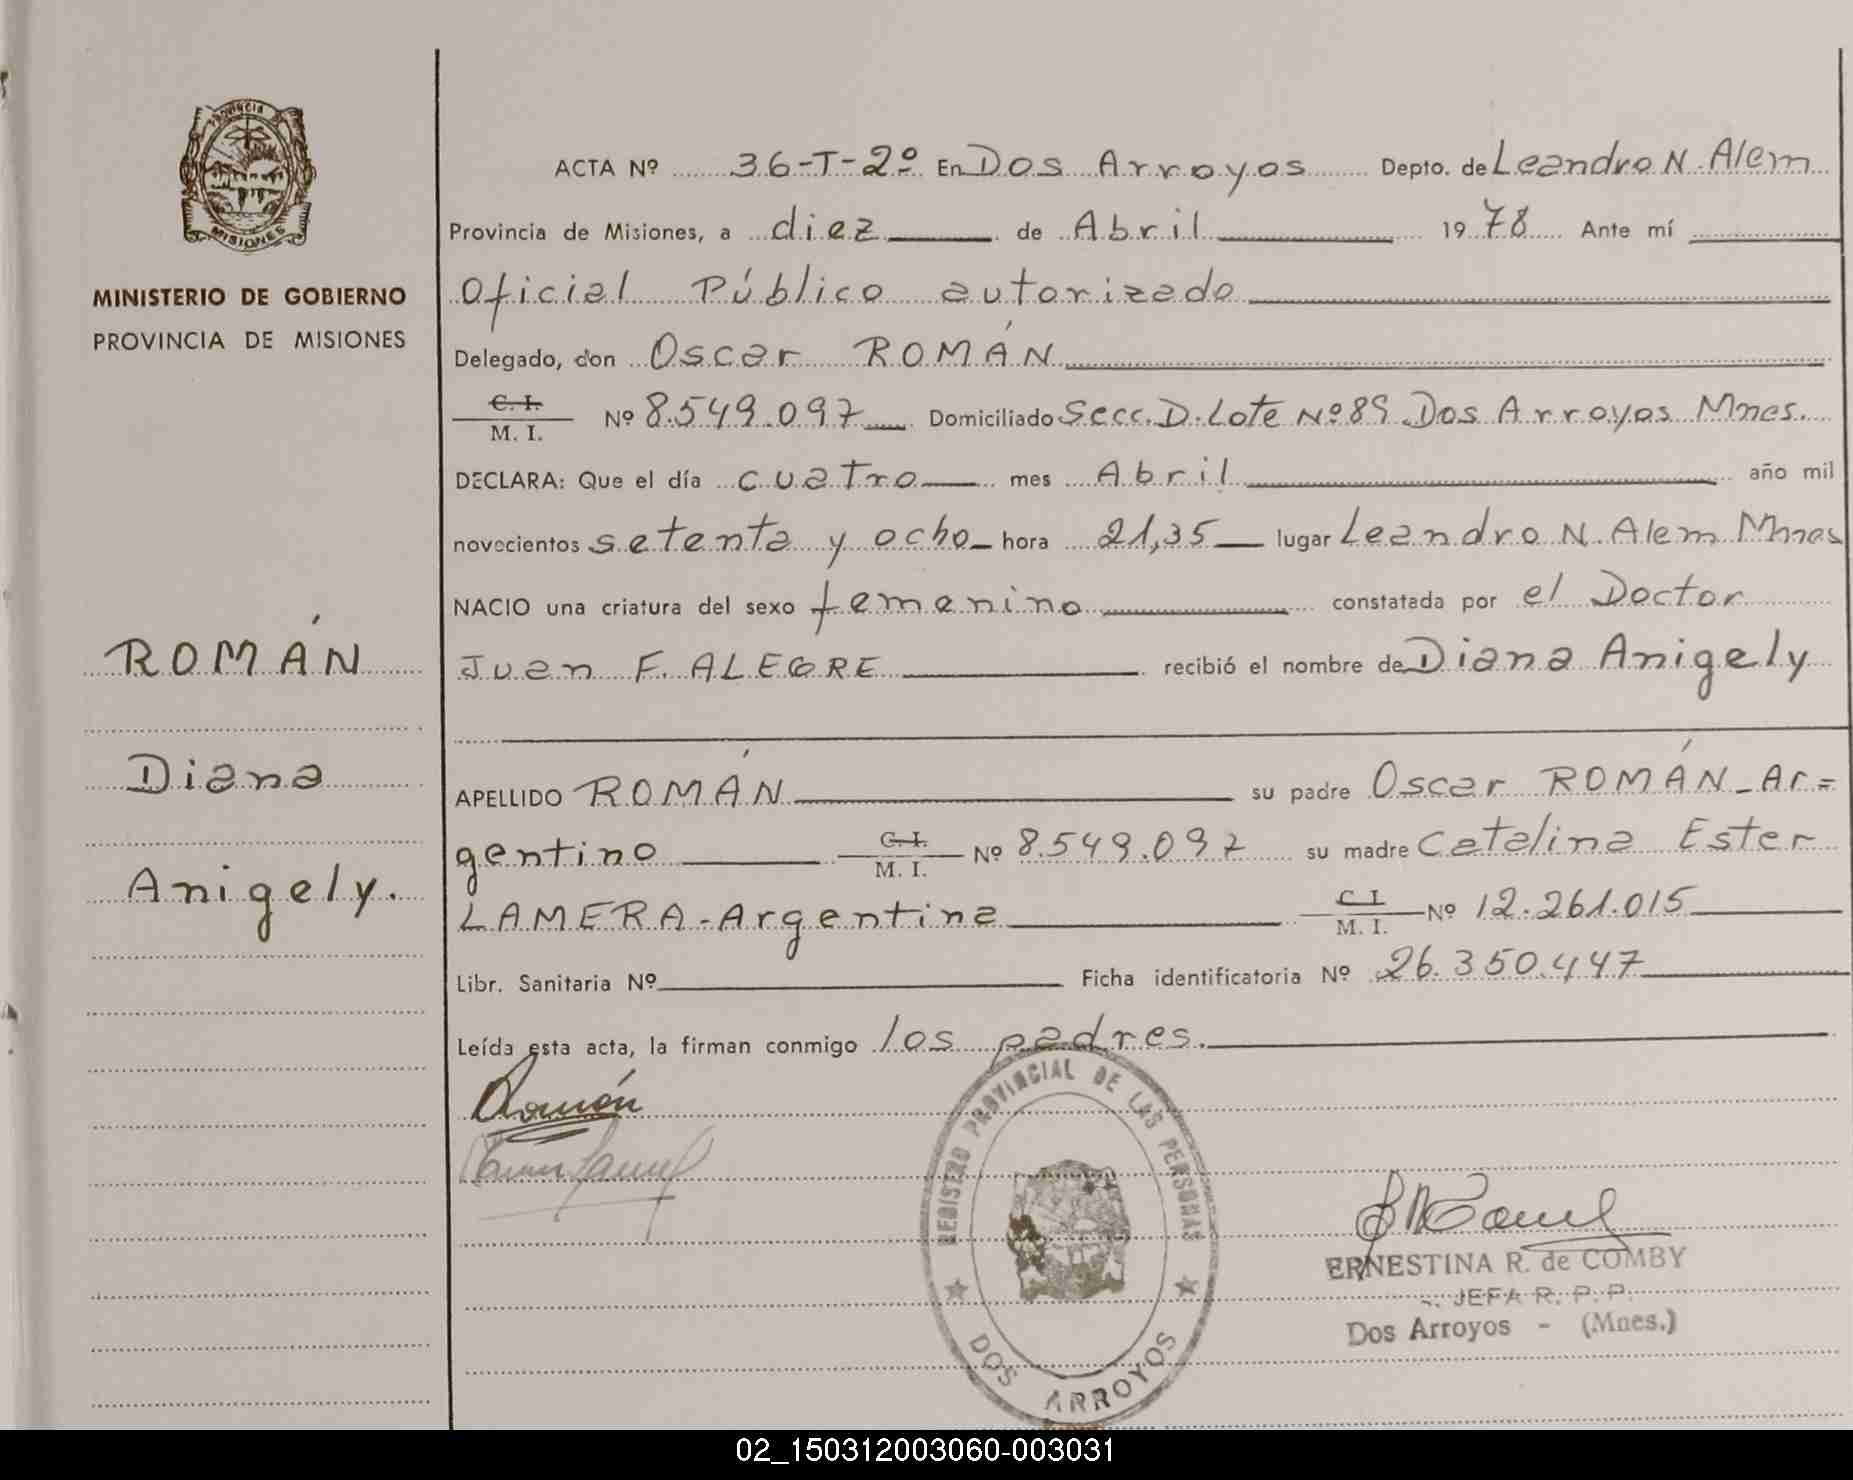 PROVINCIA
MISIONES
MINISTERIO DE GOBIERNO
PROVINCIA DE MISIONES
ROMÁN
Diana
Anigely.
ACTA Nº 36-T-2º En Dos Arroyos Depto. de Leandro N. Alem
Provincia de Misiones, a diez de Abril 1978 Ante mí
Oficial Público autorizado
Delegado, don Oscar ROMÁN
C. I.
M. I. Nº 8.549.097 Domiciliado Secc. D. Lote Nº 89 Dos Arroyos Mnes.
DECLARA: Que el día cuatro mes Abril año mil
novecientos setenta y ocho hora 21,35 lugar Leandro N. Alem Mnes
NACIO una criatura del sexo femenino constatada por el Doctor
Juan F. ALEGRE recibió el nombre de Diana Anigely
APELLIDO ROMÁN su padre Oscar ROMÁN - Ar=
gentino C. I. M. I. Nº 8.549.097 su madre Catalina Ester
LAMERA - Argentina C I. M. I. Nº 12.261.015
Libr. Sanitaria Nº Ficha identificatoria Nº 26.350.447
Leída esta acta, la firman conmigo los padres.
REGISTRO PROVINCIAL DE LAS PERSONAS
DOS ARROYOS
ERNESTINA R. de COMBY
JEFA R. P. P.
Dos Arroyos - (Mnes.)
02_150312003060-003031